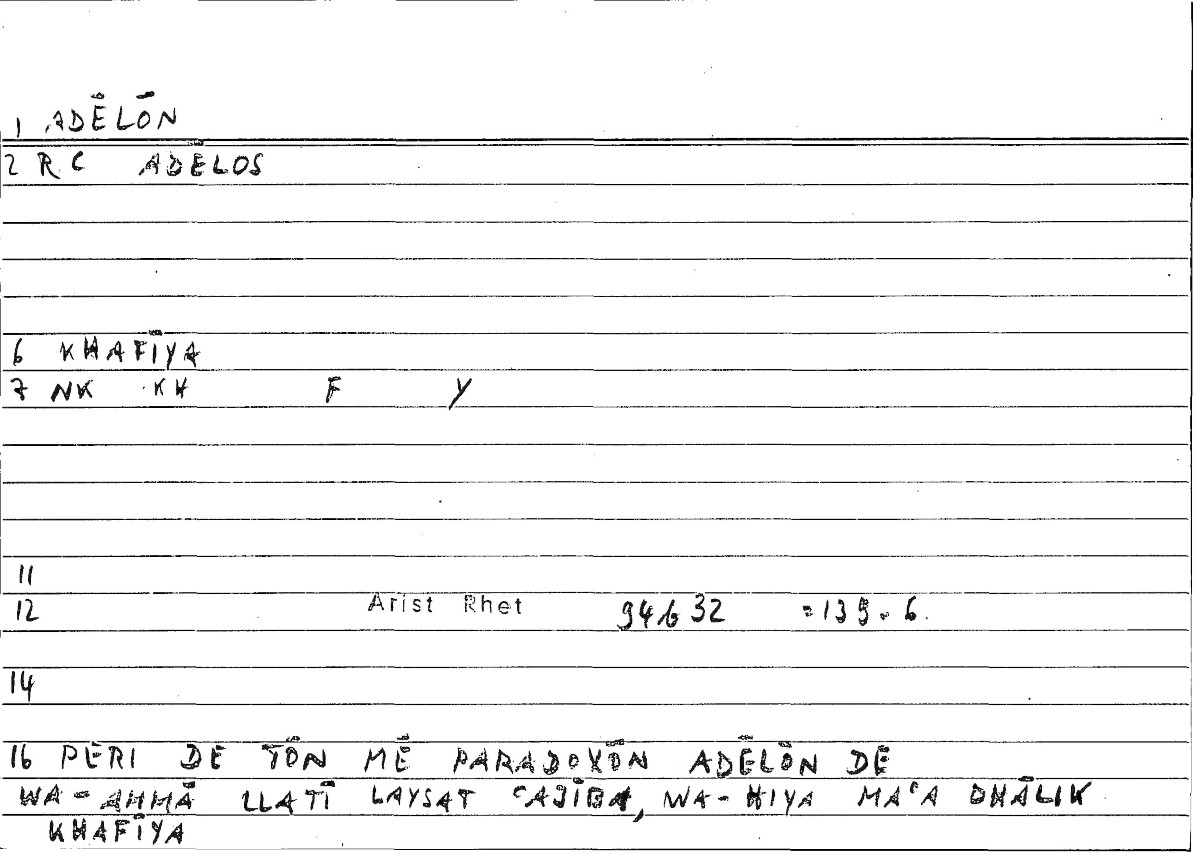 1 ADĒLŌN
2 R.C ADĒLOS
6 KHAFĪYA
7 NK KH F Y
11
12 Arist Rhet 94b32 =139.6.
14
16 PERI DE TŌN MĒ PARADOXŌN ADĒLŌN DE
WA-AMMĀ LLATĪ LAYSAT ʿAJĪBA, WA-HIYA MAʿA DHĀLIK
KHAFĪYA